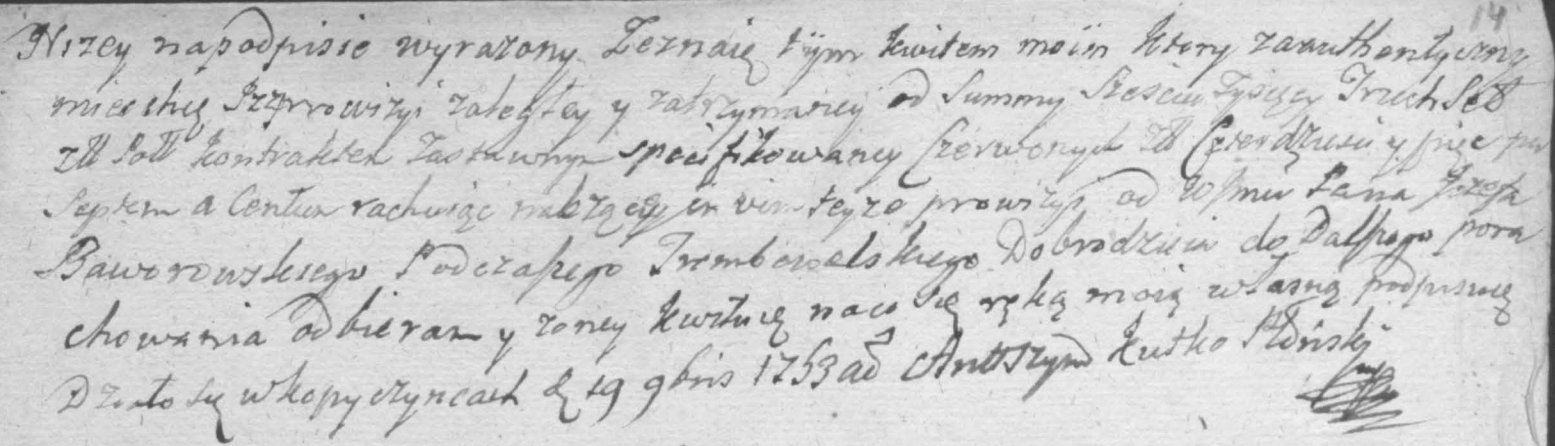 14
Nizey napodpisie wyrazony Zeznaię tym kwitem moim ktory zaauthentyczny
mieć chcę Iż prowizyi zaległey y zatrzymaney od Summy Sześciu Tysięcy Trzech Set
Zll Poll kontraktem Zastawnym specifikowaney Czerwonych Zll Czterdzieści y pięć per
Septem a Centum rachuiąc in vim teyze prowizyi od Pana Jozefa
Baworowskiego Podczaszego Trembowelskiego Dobrodzieia do Dalszego pora
chowania odbieram y zoney kwituię naco się ręką moią własną podpisuię
Działo się w Kopyczyncach D 19 9bris 1763 ad Antt Szym Hutko